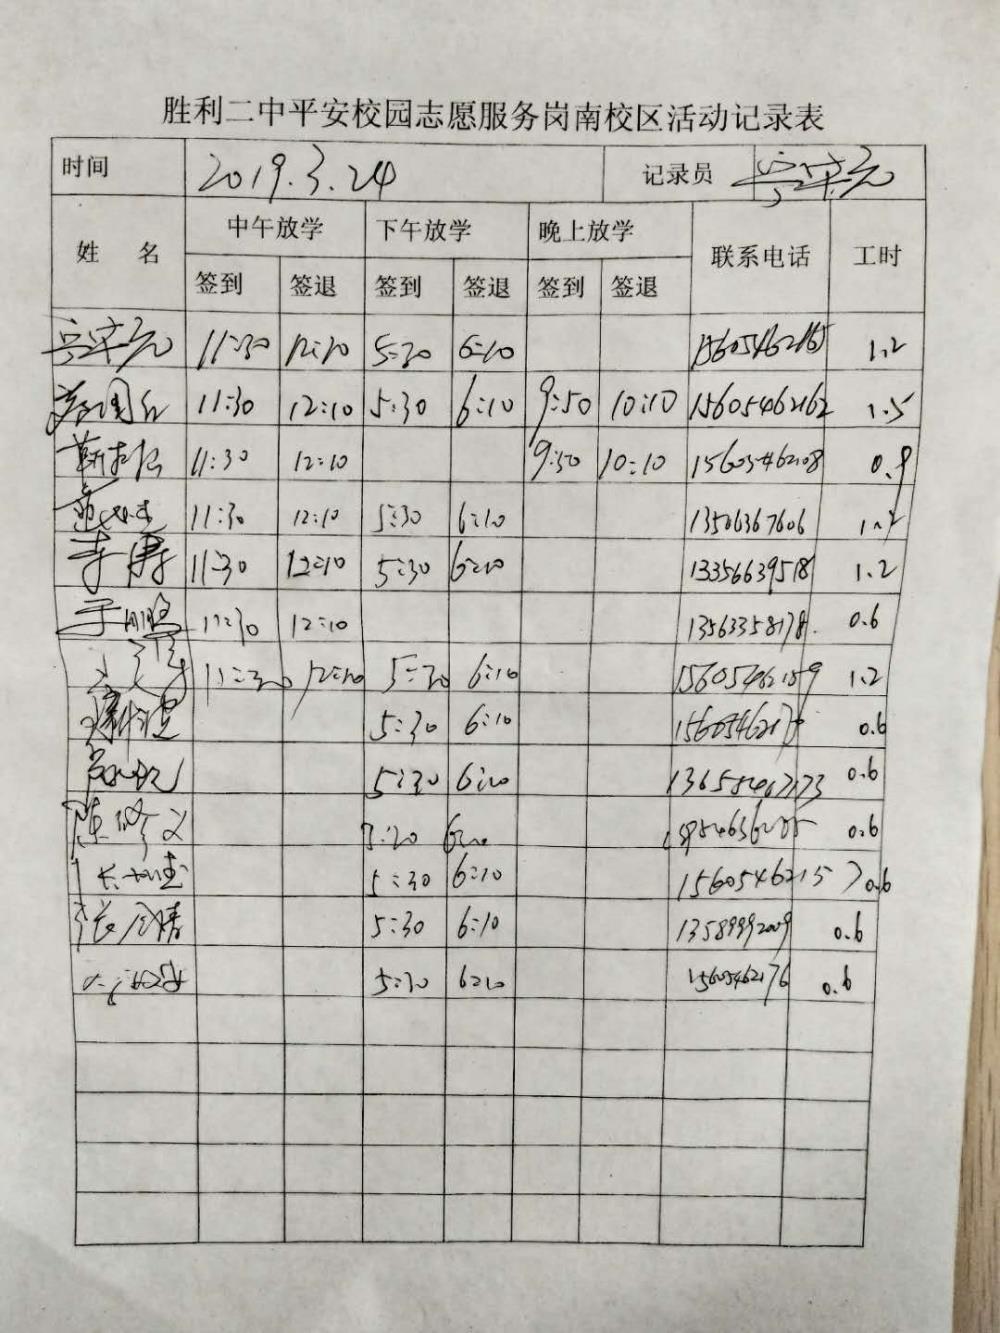 胜利二中平安校园志愿服务岗南校区活动记录表
时间 2019.3.24 记录员
姓 名 中午放学 下午放学 晚上放学 联系电话 工时
签到 签退 签到 签退 签到 签退
11:30 12:10 5:30 6:10 1.2
11:30 12:10 5:30 6:10 9:50 10:10 15605462162 1.5
11:30 12:10 9:50 10:10 15605462108 0.9
11:30 12:10 5:30 6:10 13506367606 1.2
李涛 11:30 12:10 5:30 6:10 13356639518 1.2
于鹏 11:30 12:10 13563358178 0.6
11:30 12:10 5:30 6:10 15605462159 1.2
5:30 6:10 0.6
5:30 6:10 0.6
陈修文 5:30 6:10 0.6
5:30 6:10 15605462157 0.6
张月清 5:30 6:10 13589992009 0.6
5:30 6:10 15605462176 0.6